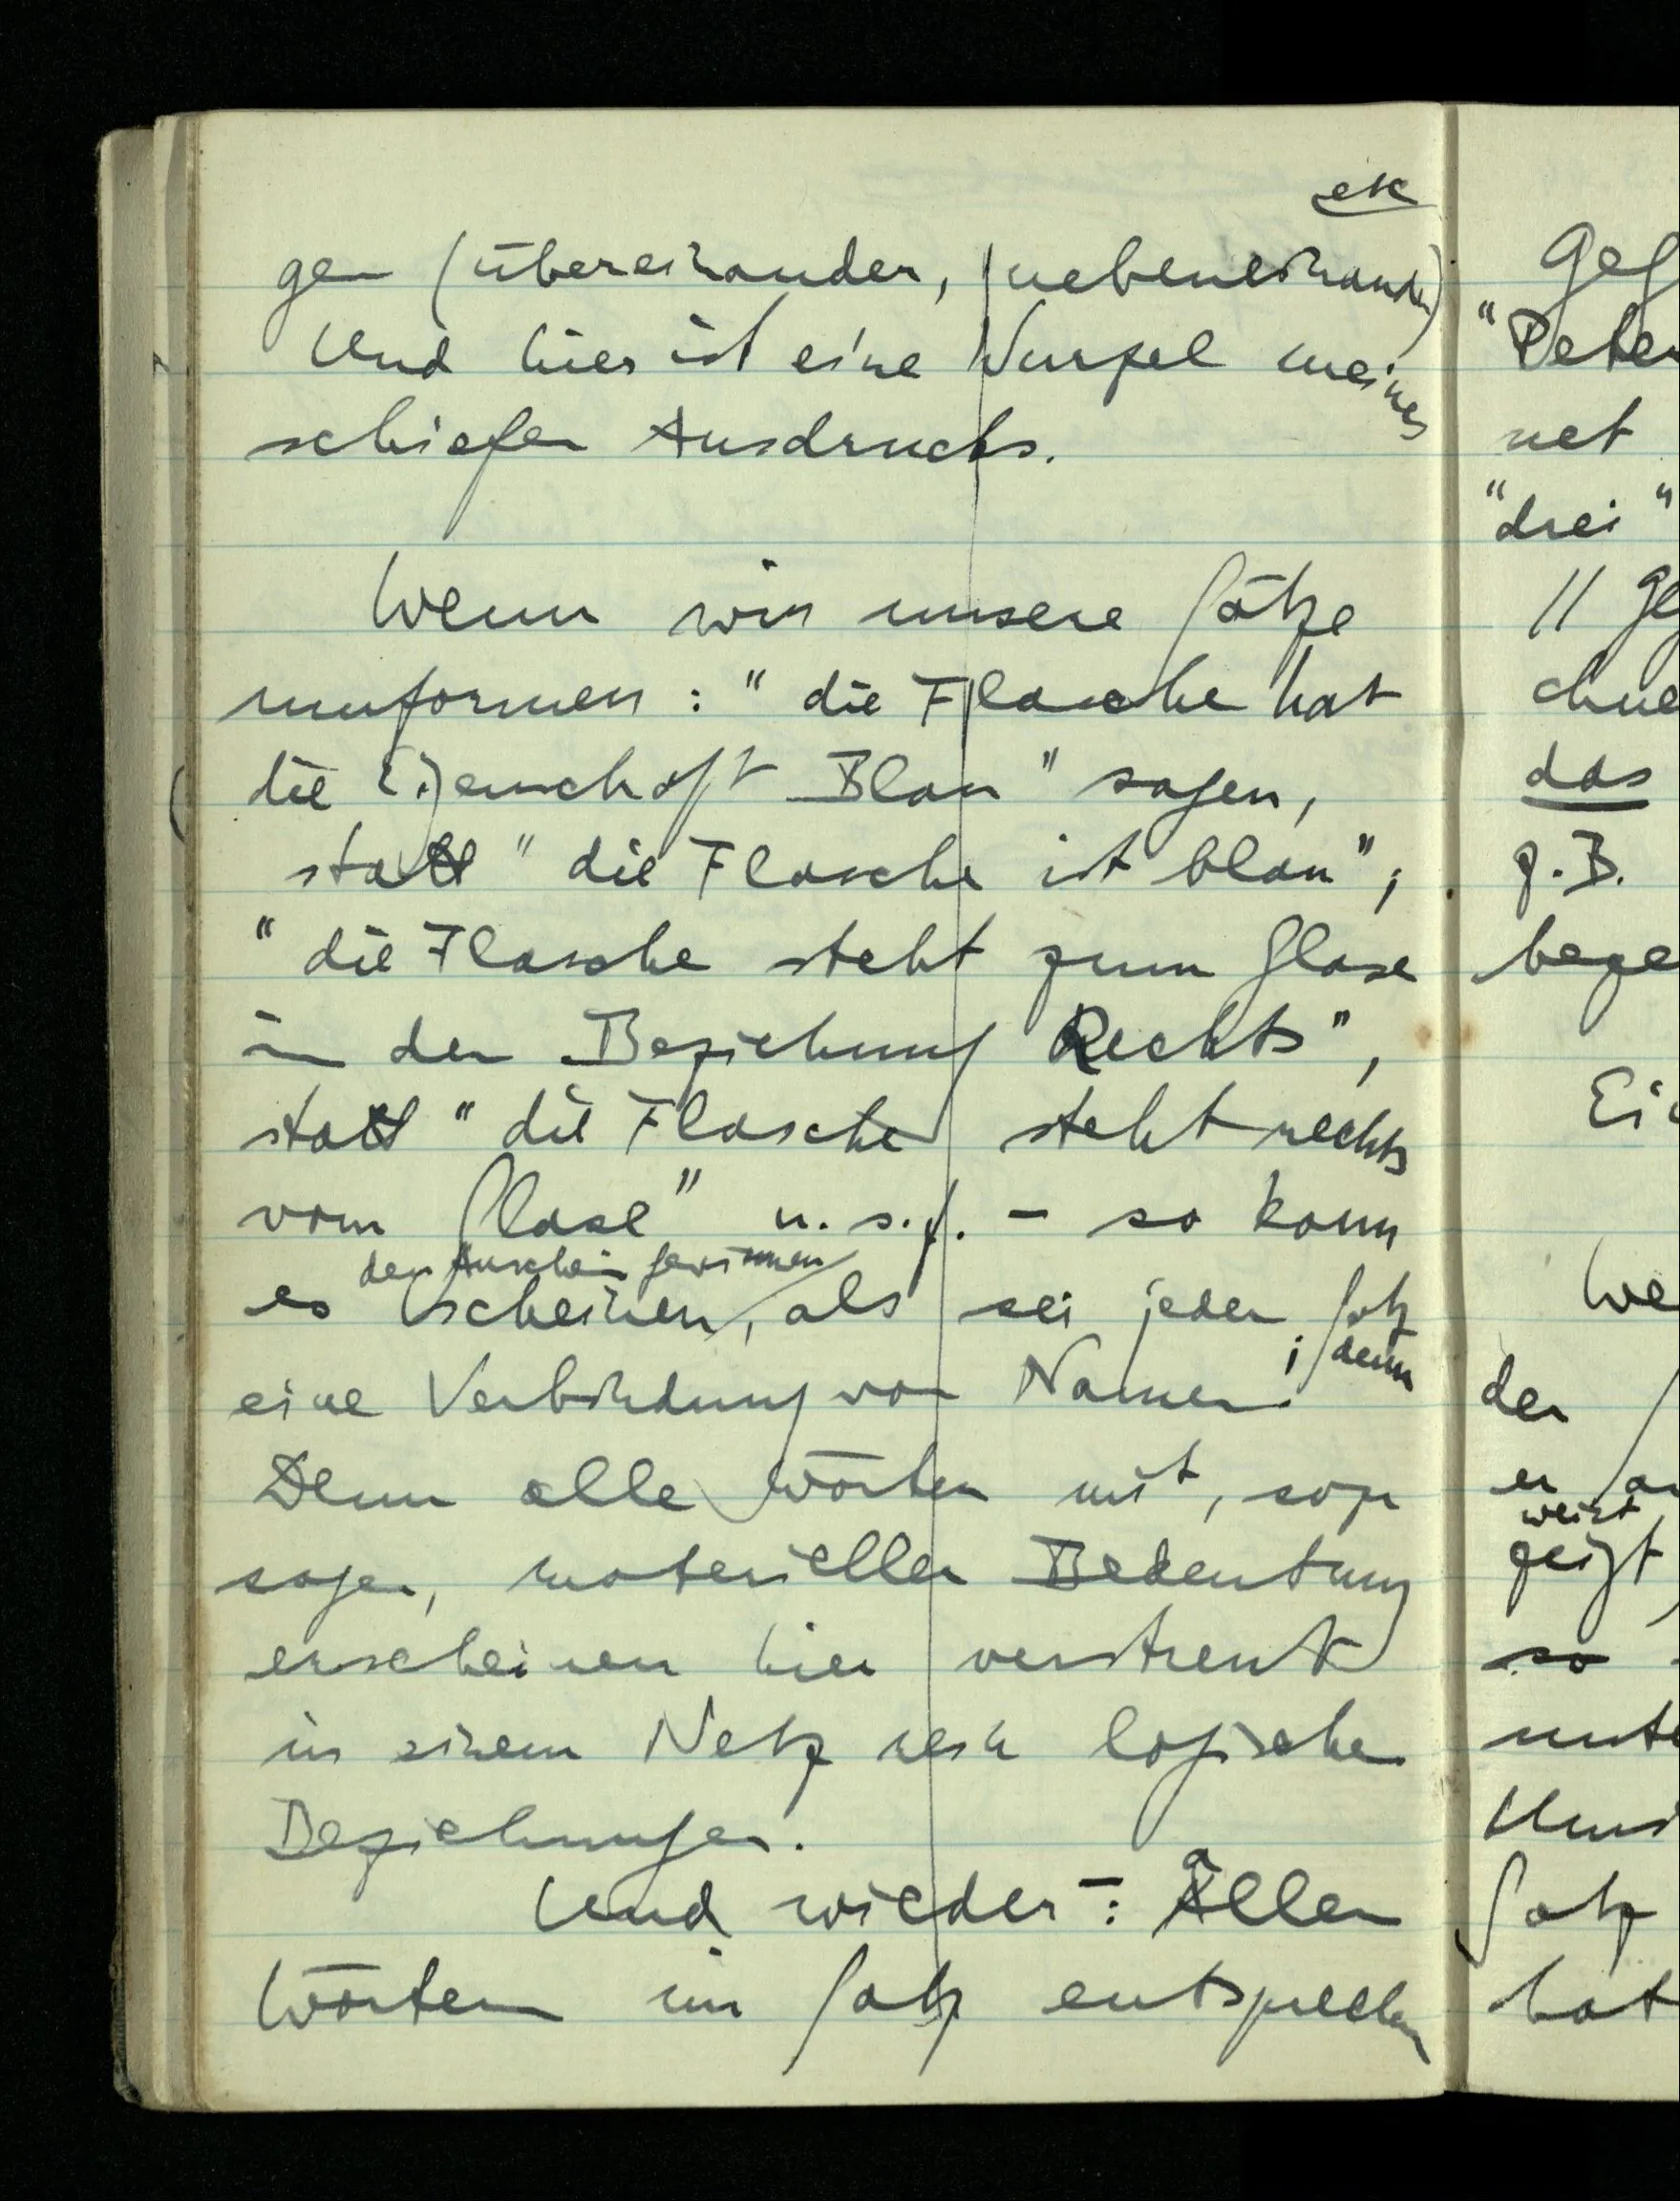 etc
gen (übereinander, nebeneinander)
Und hier ist eine Wurzel meines
schiefen Ausdrucks.
Wenn wir unsere Sätze
umformen: "die Flasche hat
die Eigenschaft Blau" sagen,
statt "die Flasche ist blau";
"die Flasche steht zum Glase
in der Beziehung Rechts",
statt "die Flasche steht rechts
vom Glase" u.s.f. – so kann
den Anschein gewinnen
es scheinen, als sei jeder Satz
eine Verbindung von Namen; denn
Denn alle Wörter mit, sozu
sagen, materieller Bedeutung
erscheinen hier verstreut
in einem Netz rein logischer
Beziehungen.
Und wieder –: Allen
Wörtern im Satz entsprechen
"Peter
net
"drei"
das
z.B.
beze
der
er
weist
zeigt
so
Satz
hat